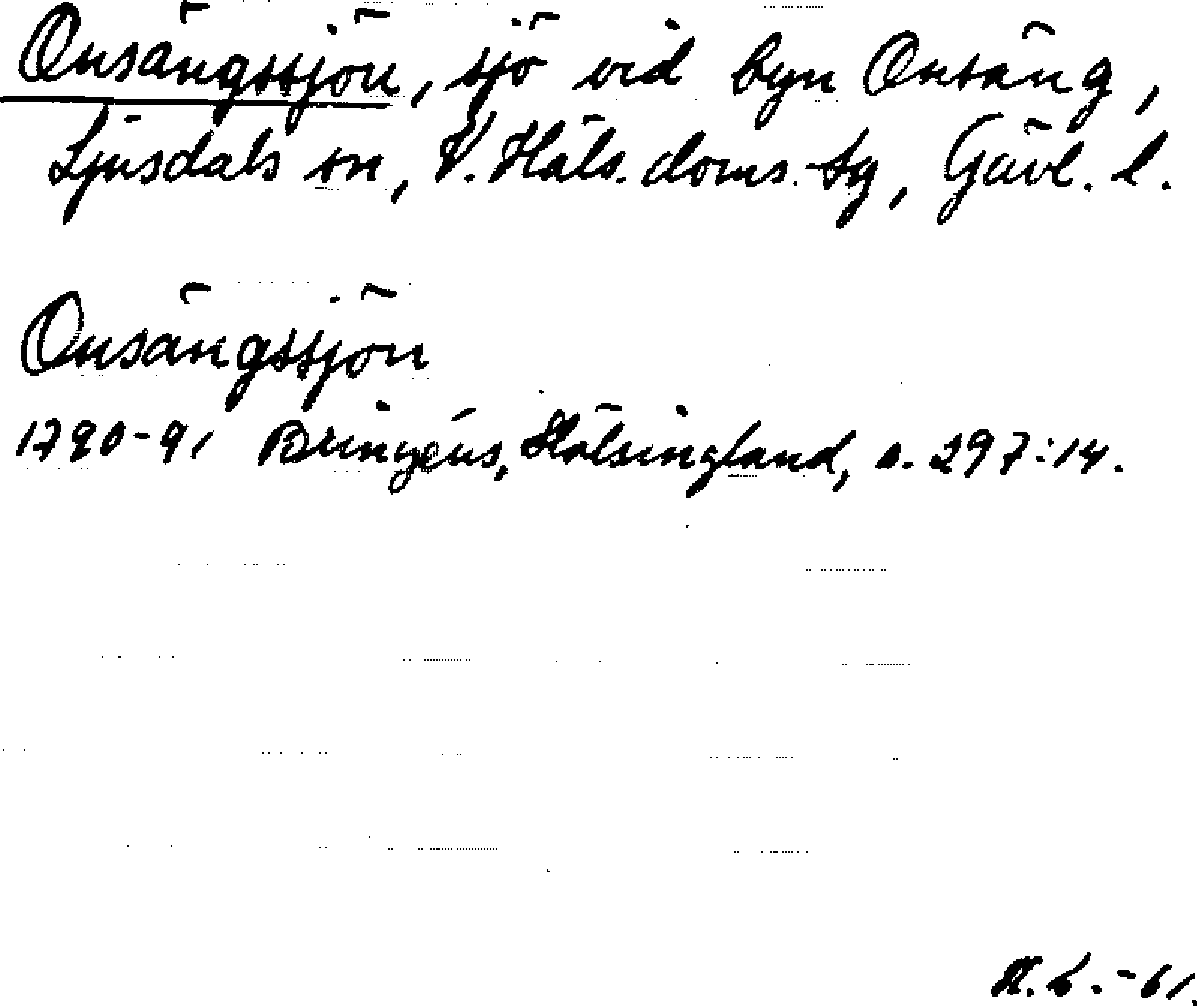 Onsängssjön, sjö vid byn Onsäng,
Ljusdals sn, V. Häls. doms.-sg, Gävl. l.
Onsängssjön
1790-91 Bringéus, Hälsingland, s. 297:14.
-61.